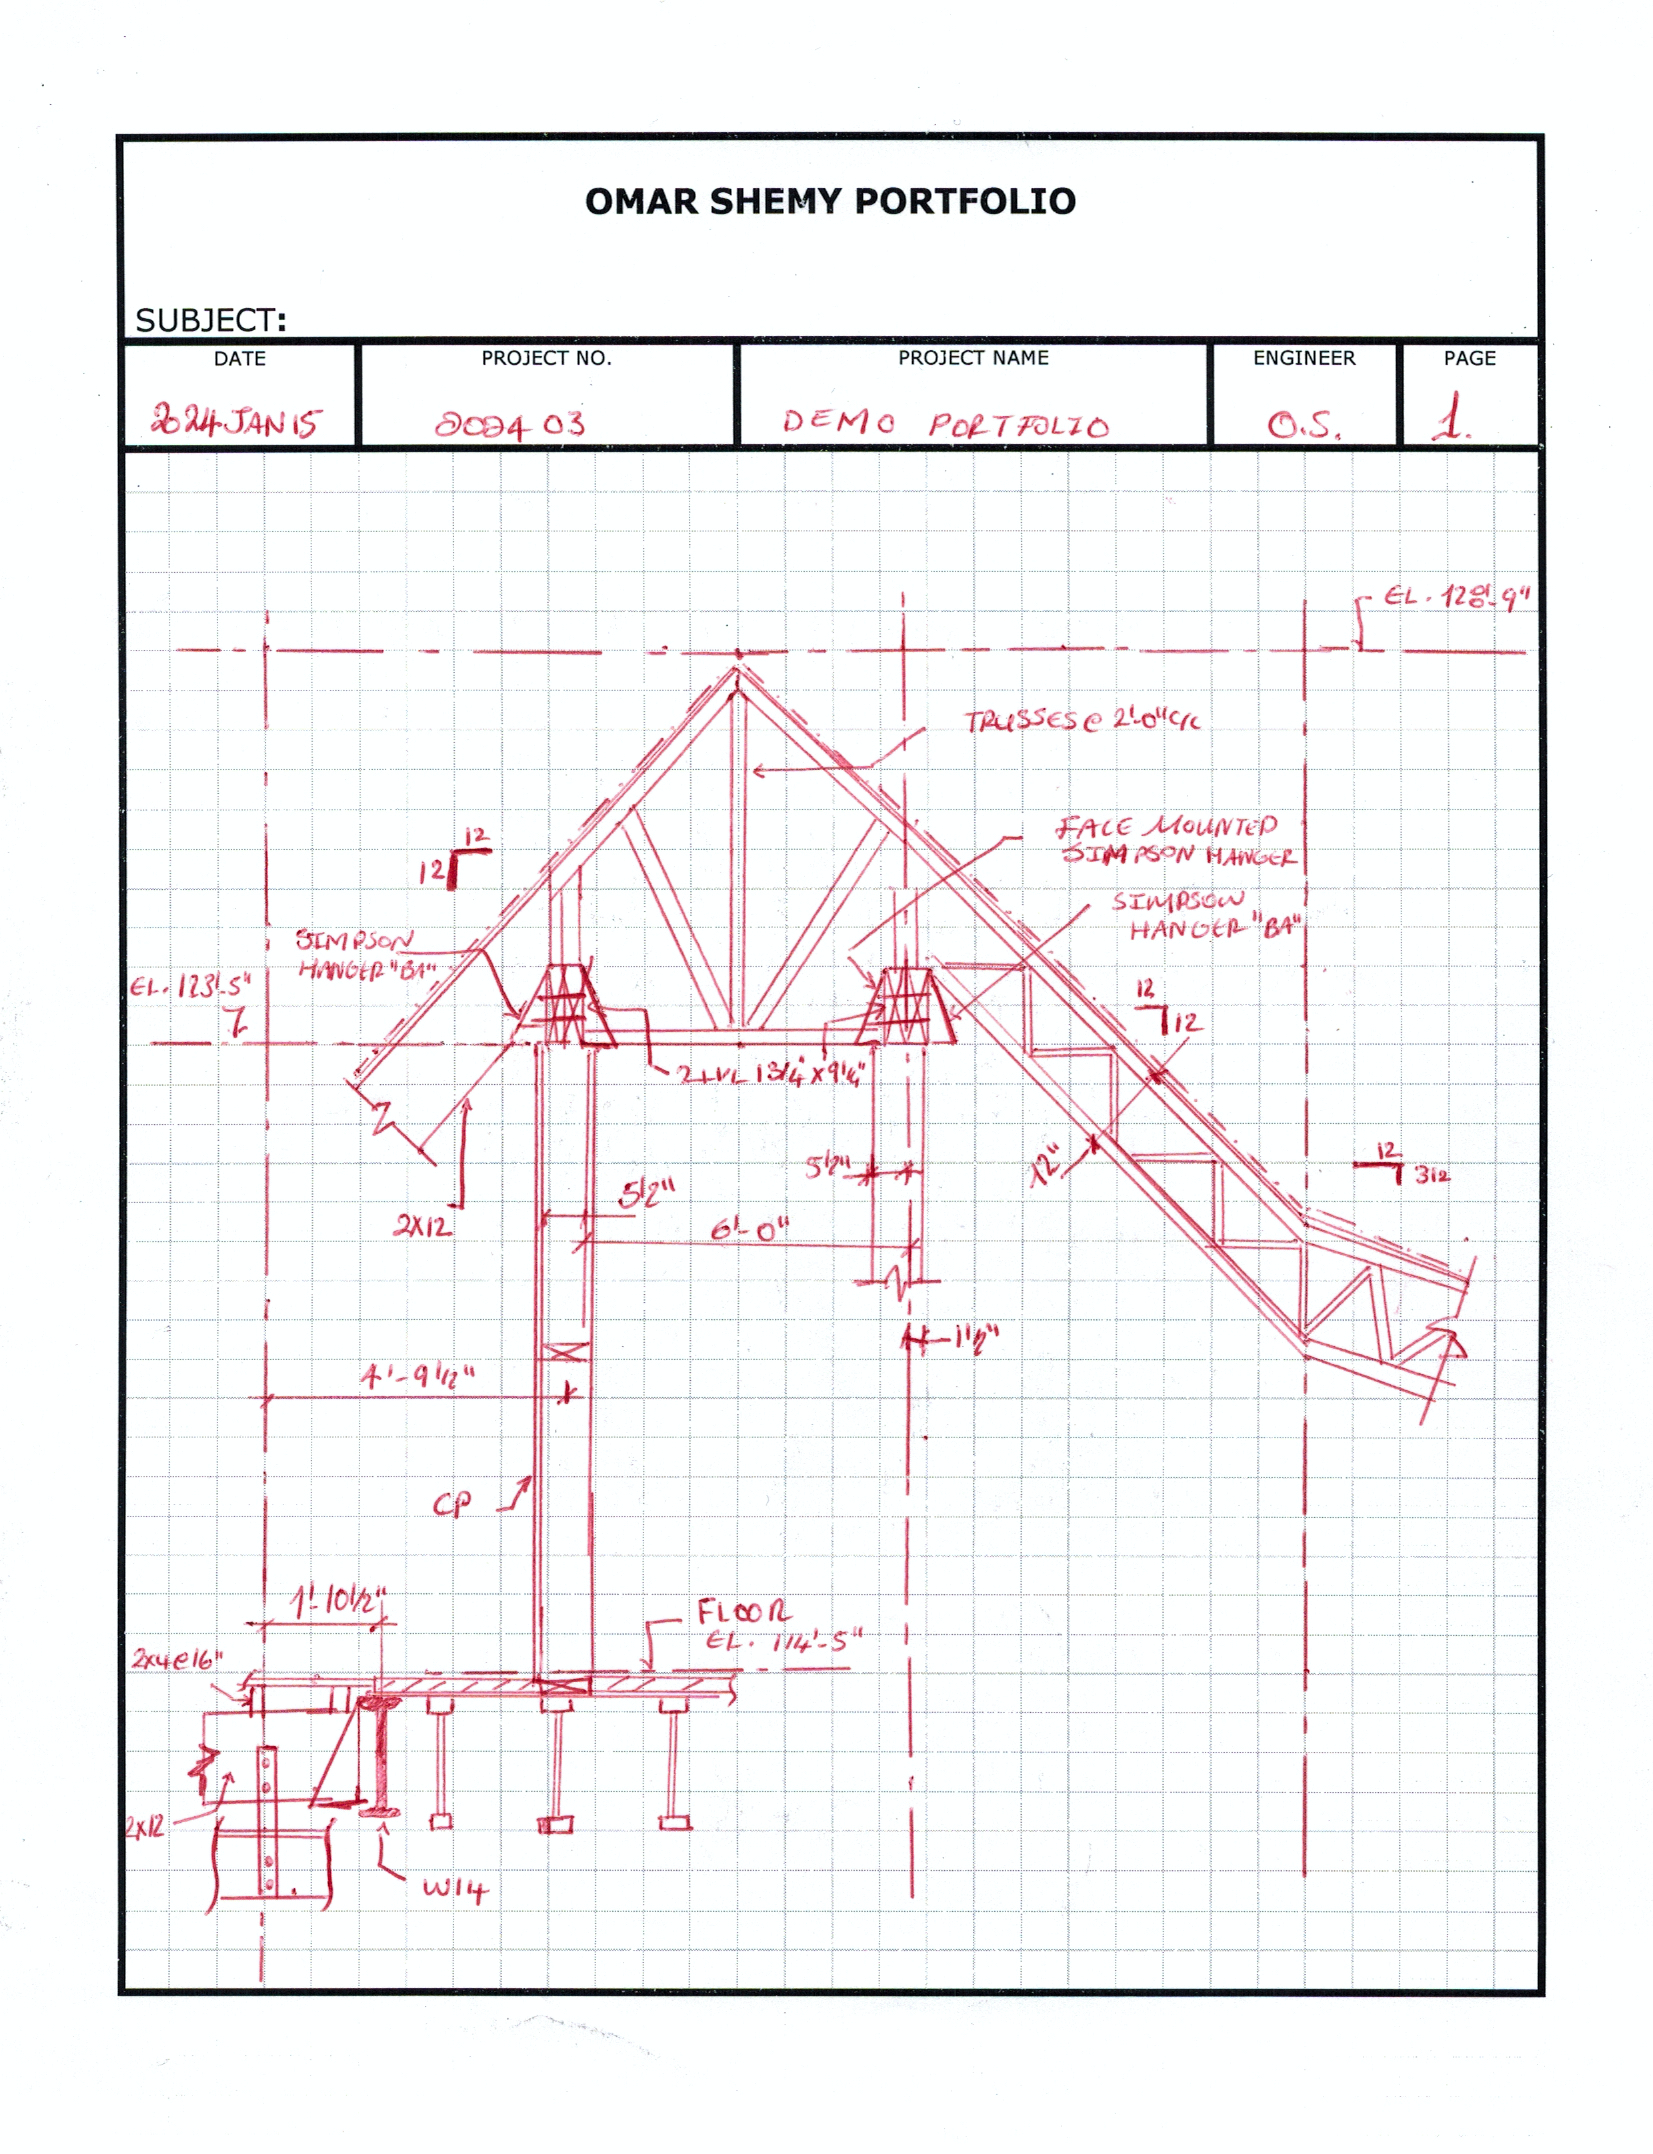 OMAR SHEMY PORTFOLIO
SUBJECT:
DATE
PROJECT NO.
PROJECT NAME
ENGINEER
PAGE
2024 JAN 15
2024 03
DEMO PORTFOLIO
O.S.
1.
EL. 128'-9"
TRUSSES @ 2'-0" C/C
12
12
FACE MOUNTED
SIMPSON HANGER
SIMPSON
HANGER "BA"
SIMPSON
HANGER "BA"
EL. 123'-5"
12
12
2 LVL 1 3/4" x 9 1/4"
5 1/2"
12"
12
3 1/2
2X12
5 1/2"
6'-0"
1 1/2"
4'-9 1/2"
CP
1'-10 1/2"
FLOOR
EL. 114'-5"
2x4@16"
2x12
W14